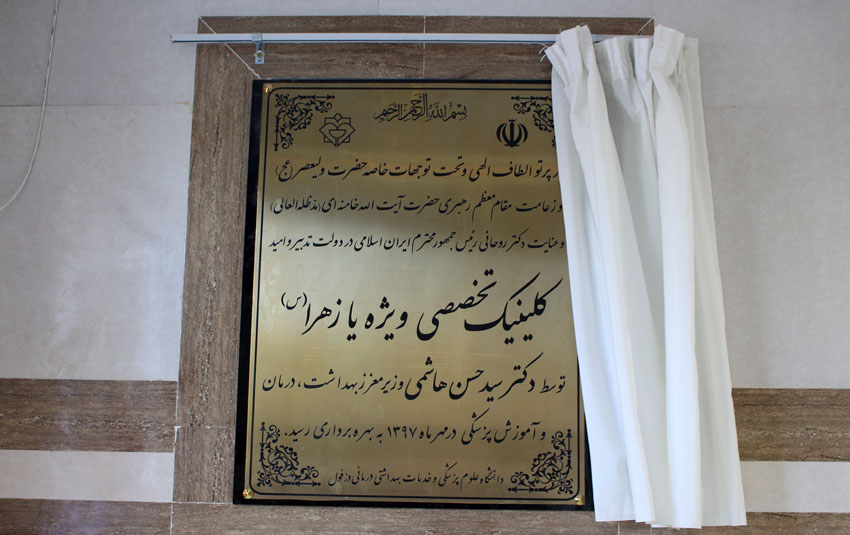 بسم الله الرحمن الرحیم
پرتو الطاف الهی و تحت توجهات خاصه حضرت ولیعصر (عج)
و زعامت مقام معظم رهبری حضرت آیت الله خامنه ای (مدظله العالی)
و عنایت دکتر روحانی رئیس جمهور محترم ایران اسلامی در دولت تدبیر و امید
کلینیک تخصصی ویژه یا زهرا (س)
توسط دکتر سید حسن هاشمی وزیر معزز بهداشت، درمان
و آموزش پزشکی در مهر ماه ۱۳۹۷ به بهره برداری رسید.
دانشگاه علوم پزشکی و خدمات بهداشتی درمانی دزفول